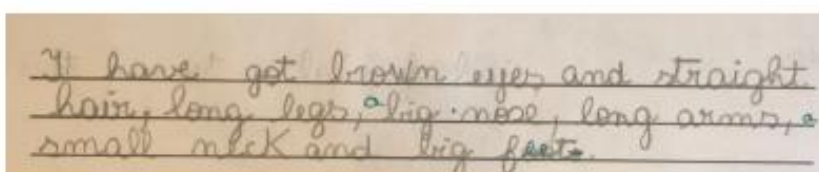 I have got brown eyes and straight
hair, long legs, a big nose, long arms, a
small neck and big feet.